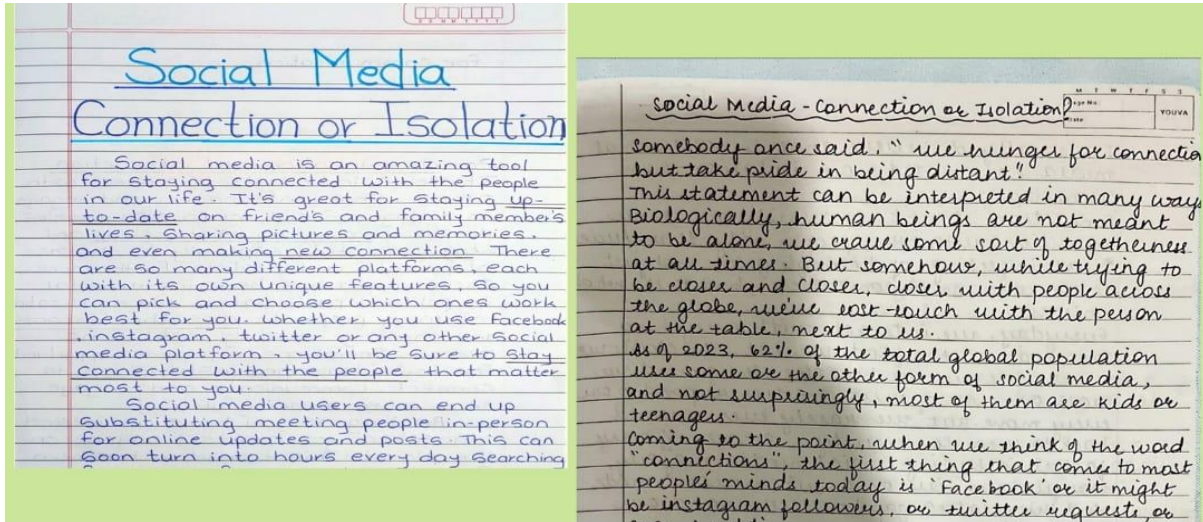 D D M M Y Y Y Y
Social Media
Connection or Isolation
Social media is an amazing tool
for staying connected with the people
in our life. It's great for staying up-
to-date on friend's and family member's
lives, sharing pictures and memories,
and even making new connection. There
are so many different platforms, each
with its own unique features, so you
can pick and choose which ones work
best for you. whether you use facebook
, instagram, twitter or any other social
media platform, you'll be sure to stay
connected with the people that matter
most to you.
Social media users can end up
substituting meeting people in-person
for online updates and posts. This can
soon turn into hours every day searching
M T W T F S S
Page No.:
Date
YOUVA
Social Media - Connection or Isolation?
somebody once said, "we hunger for connectio
but take pride in being distant."
This statement can be interpreted in many way
Biologically, human beings are not meant
to be alone, we crave some sort of togetherness
at all times. But somehow, while trying to
be closer and closer, closer with people across
the globe, we've lost-touch with the person
at the table, next to us.
As of 2023, 62% of the total global population
uses some or the other form of social media,
and not surprisingly, most of them are kids or
teenagers.
Coming to the point, when we think of the word
"connections", the first thing that comes to most
people's minds today is 'Facebook' or it might
be instagram followers, or twitter requests, or